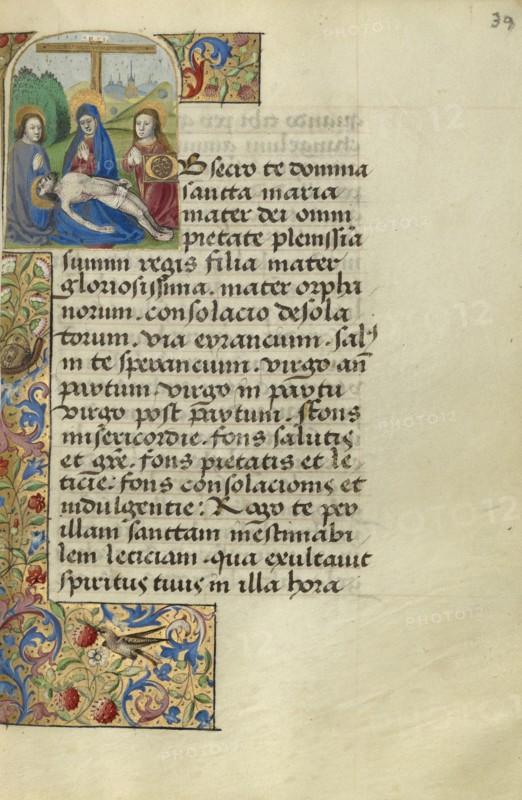 39
Obsecro te domina
sancta maria
mater dei omni
pietate plenissia
summi regis filia mater
gloriosissima. mater orpha
norum. consolacio desola
torum. via errancium. sal9
in te sperancium. virgo an̄
partum. virgo in partu
virgo post partum. ffons
misericordie. fons salutis
et gr̄e. fons pietatis et le
ticie: fons consolacionis et
indulgentie: Rogo te per
illam sanctam inestimabi
lem leticiam. qua exultauit
spiritus tuus in illa hora